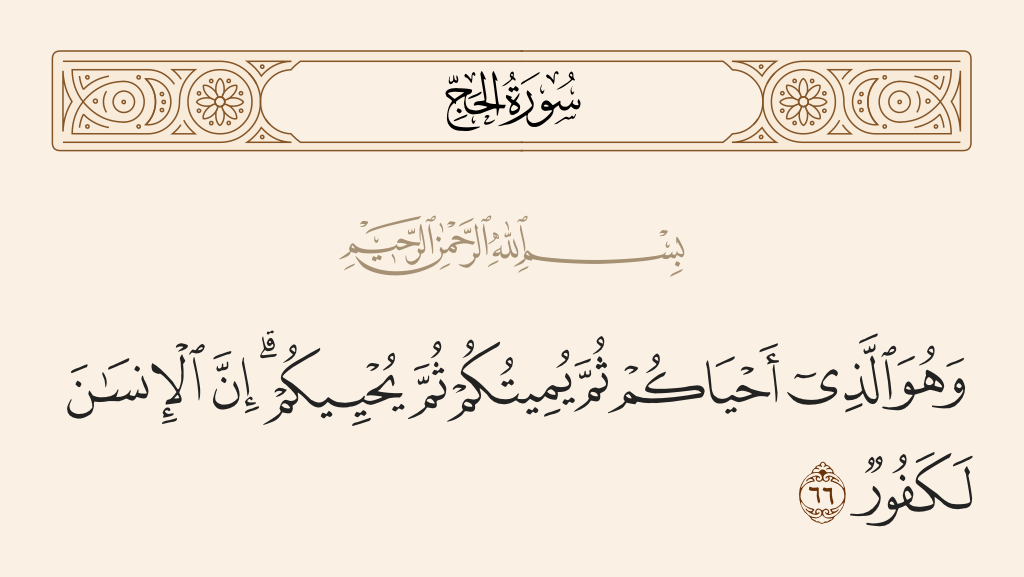 سُورَةُ الْحَجِّ
بِسْمِ ٱللَّهِ ٱلرَّحْمَٰنِ ٱلرَّحِيمِ
وَهُوَ ٱلَّذِىٓ أَحْيَاكُمْ ثُمَّ يُمِيتُكُمْ ثُمَّ يُحْيِيكُمْ ۗ إِنَّ ٱلْإِنسَـٰنَ
لَكَفُورٌ ٦٦